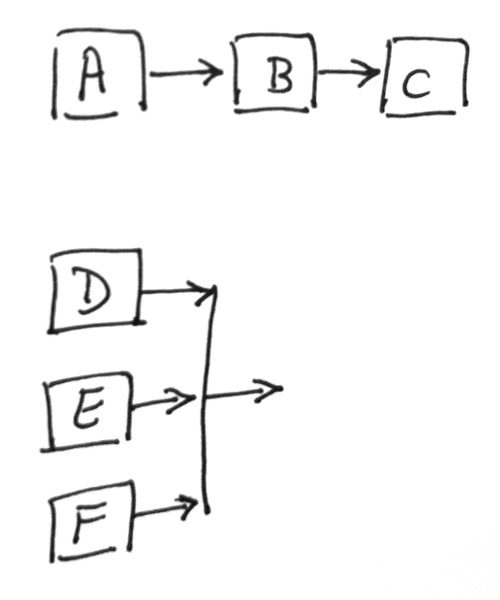 A B C
D
E
F